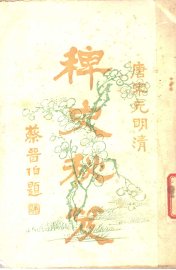 唐宋元明清
稗史秘笈
蔡晋伯题